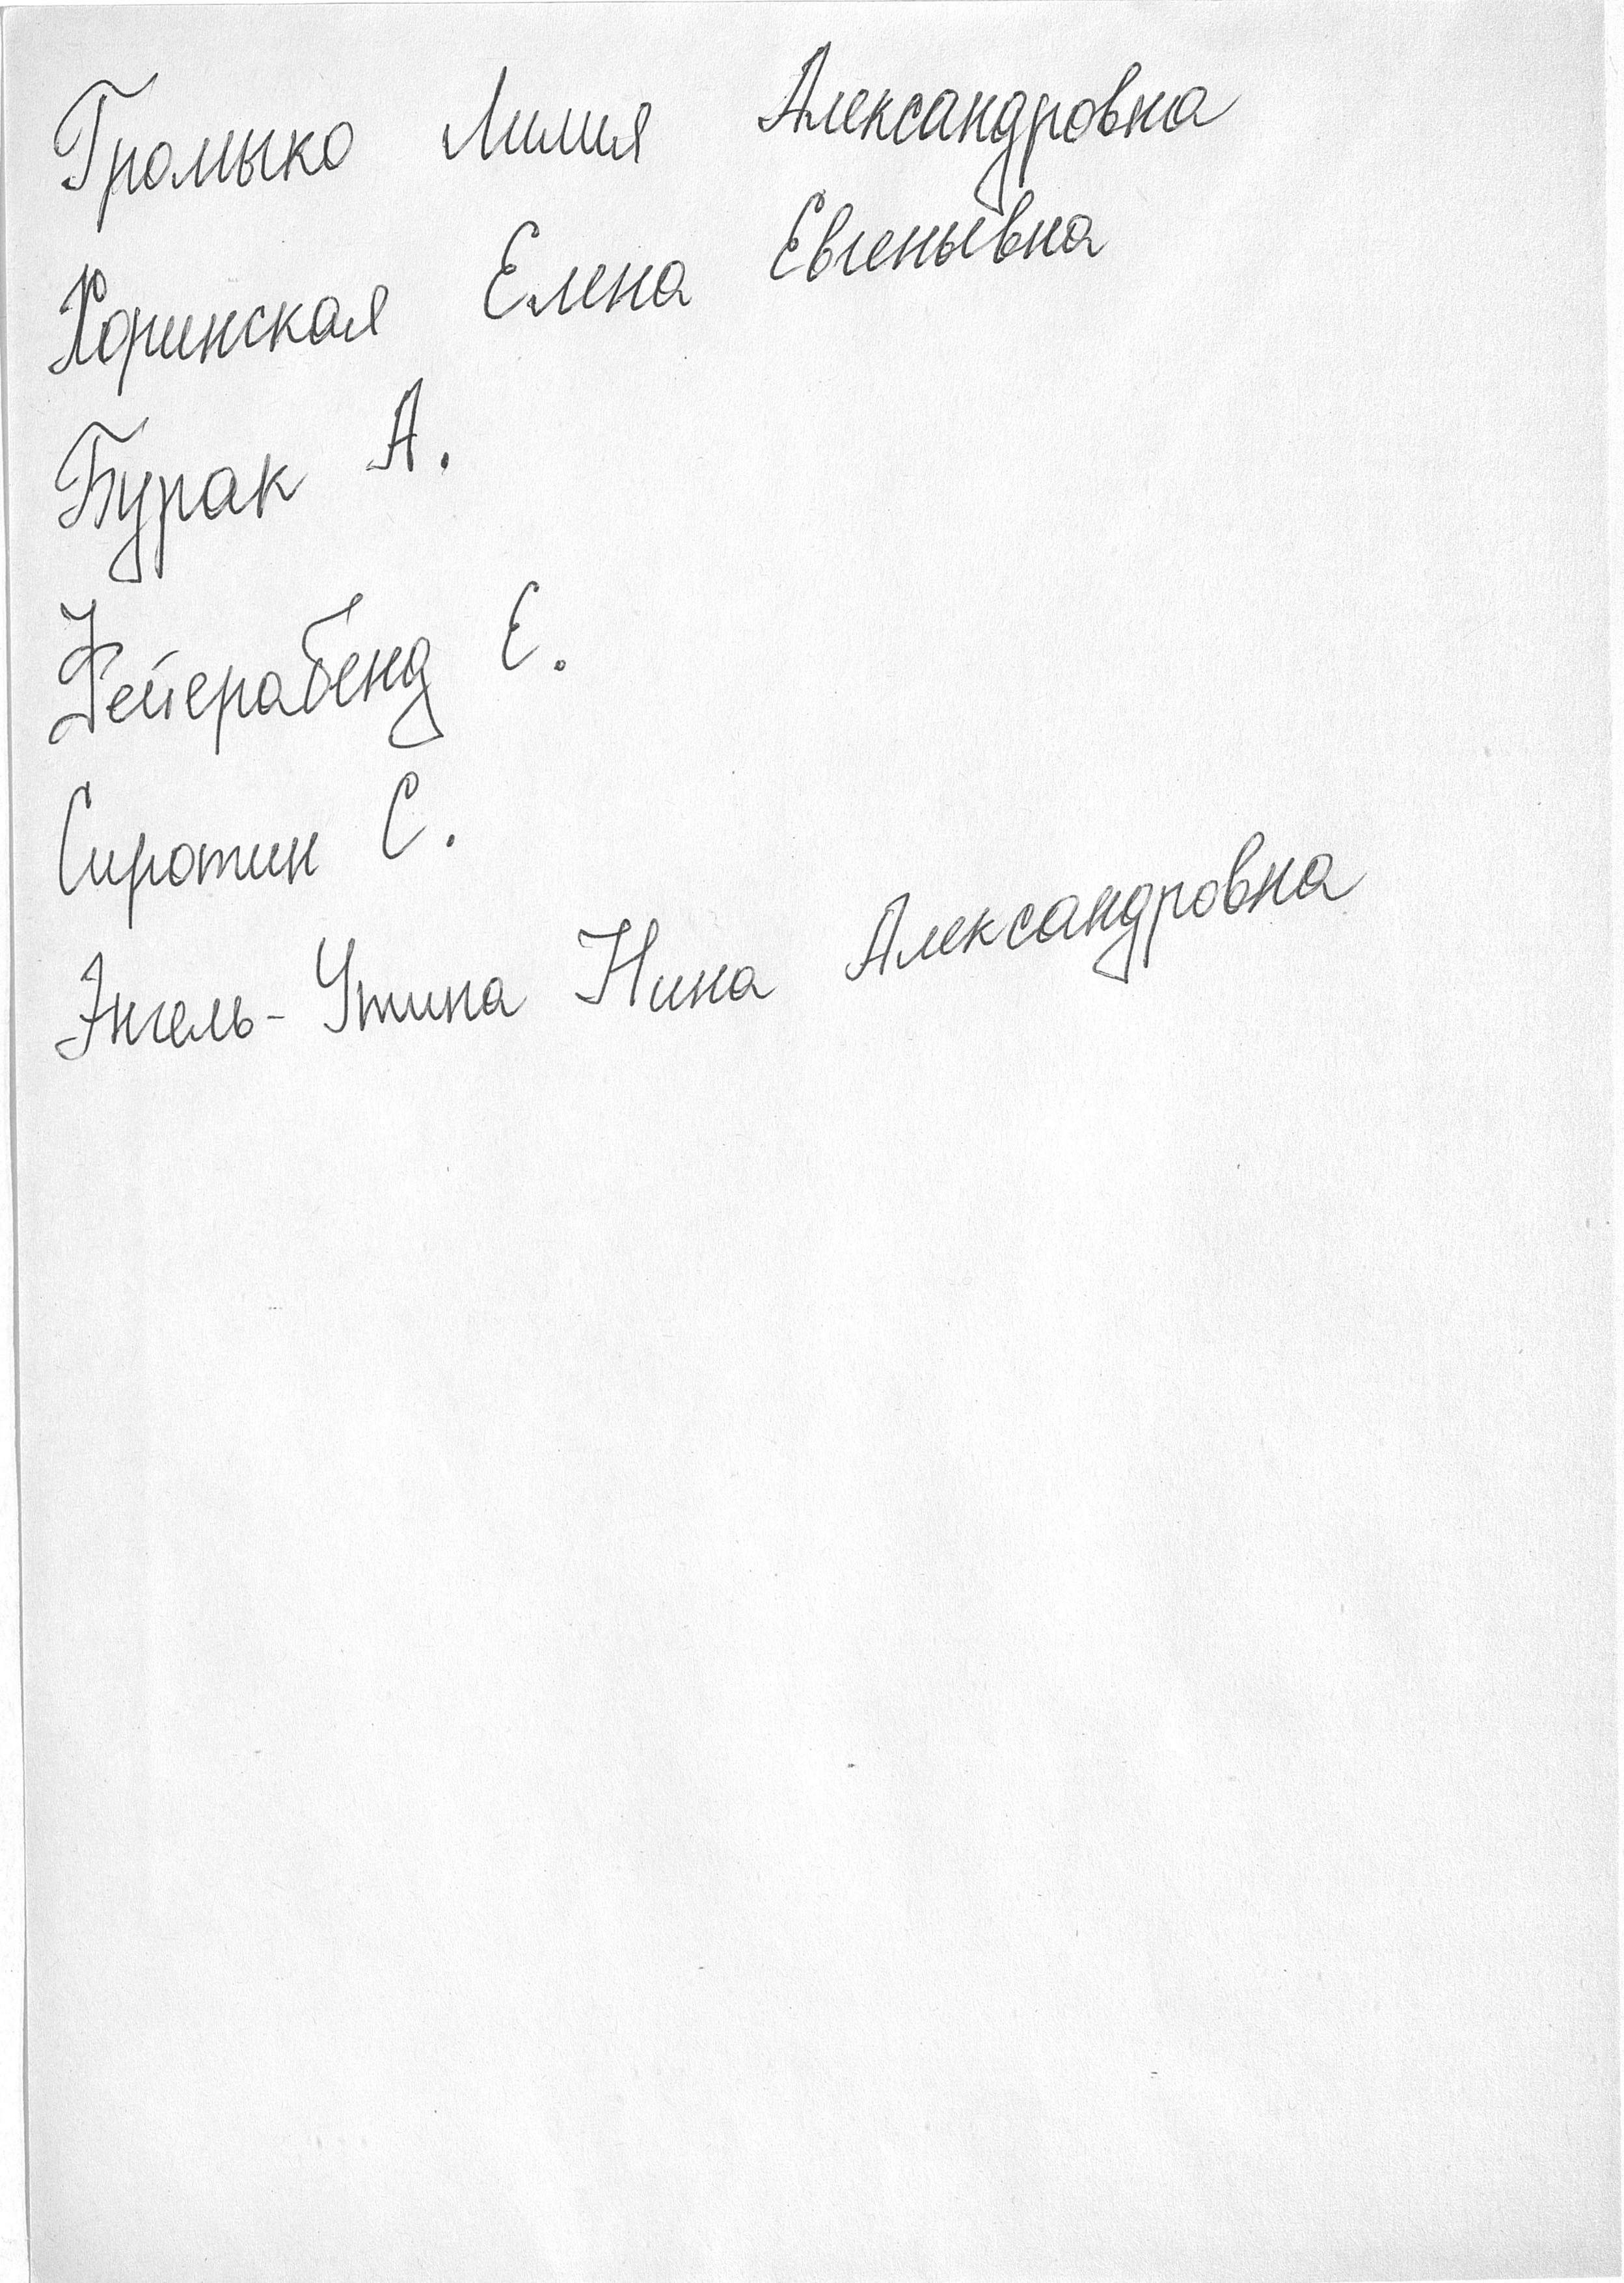 Громыко Лилия Александровна
Хоринская Елена Евгеньевна
Бурак А.
Фейерабенд Е.
Сиротин С.
Энгель-Утина Нина Александровна